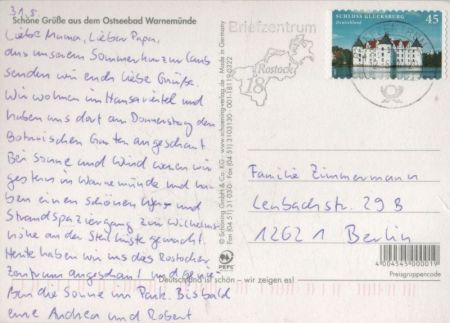 31.8
Schöne Grüße aus dem Ostseebad Warnemünde
Liebe Mama, Lieber Papa,
aus unserem Sommerkurzurlaub
senden wir euch liebe Grüße.
Wir wohnen im Hansaviertel und
haben uns dort am Donnerstag den
Botanischen Garten angeschaut
Bei Sonne und Wind waren wir
gestern in Warnemünde und ha-
ben einen schönen
Strandspaziergang zur Wilhelms-
höhe an der Steilküste gemacht.
Heute haben wir uns das Rostocker
Zentrum angeschaut und genie-
ßen die Sonne im Park. Bis bald
eure Andrea und Robert
© Schöning GmbH & Co. KG · www.schoening-verlag.de · Made in Germany
Fon (04 51) 31 03 0 · Fax (04 51) 3103130 · 001-18119-0322
PEPC
Deutschland ist schön – wir zeigen es!
Briefzentrum
Rostock
18
SCHLOSS GLÜCKSBURG
Deutschland
45
Familie Zimmermann
Lenbachstr. 29 B
12621 Berlin
4 004545 000019
Preisgruppencode